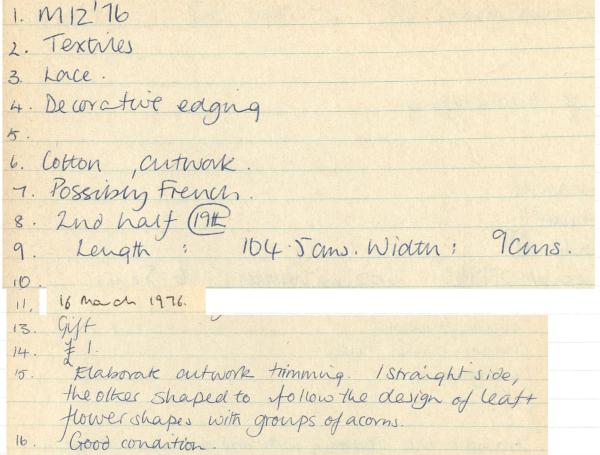 1. M12'76
2. Textiles
3. Lace.
4. Decorative edging
5.
6. Cotton , cutwork.
7. Possibly French.
8. 2nd half 19th
9. Length : 104.5cms. Width : 9cms.
10.
11. 16 March 1976.
13. Gift
14. £1.
15. Elaborate cutwork trimming. 1 straight side,
the other shaped to follow the design of leaf +
flower shapes with groups of acorns.
16. Good condition.